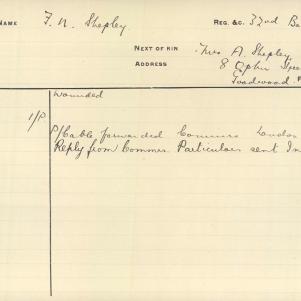 NAME F. N. Shepley REG. &C. 32nd Ba
NEXT OF KIN Mrs A. Shepley
ADDRESS 8 Ophir Stree
Goodwood
Wounded
1/P P/Cable forwarded Commrs London
Reply from Commr. Particulars sent In